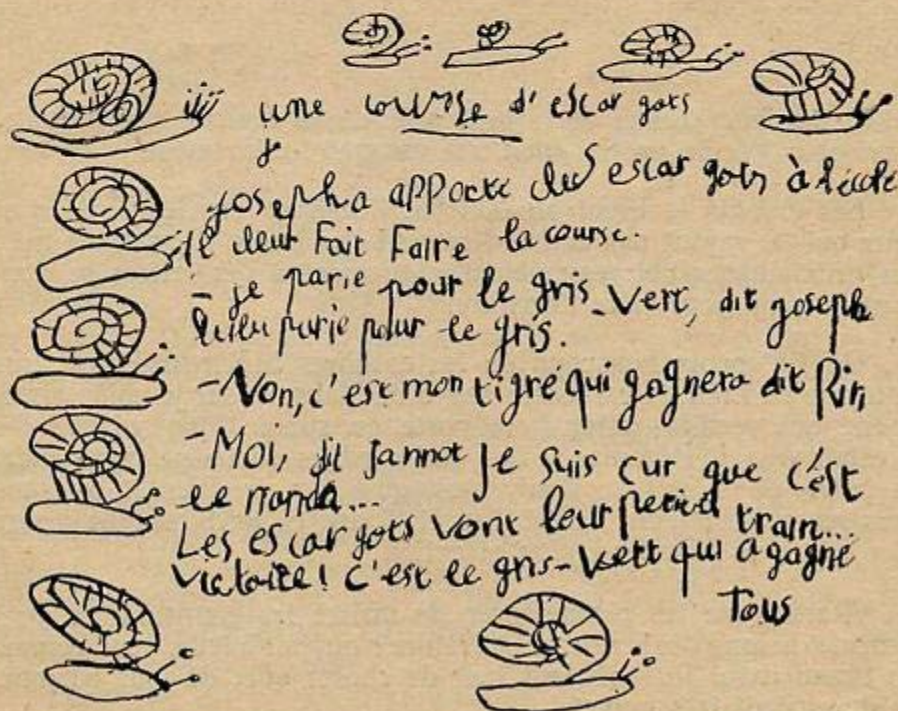 une course d'escargots
J
Joseph a apporté des escargots à l'école
il leur fait faire la course.
- je parie pour le gris-vert, dit joseph
parie pour le gris.
- Non, c'est mon tigré qui gagnera dit
- Moi, dit jannot je suis cur que c'est
le
Les escargots vont leur petit train...
victoire! c'est le gris-vert qui a gagné
Tous